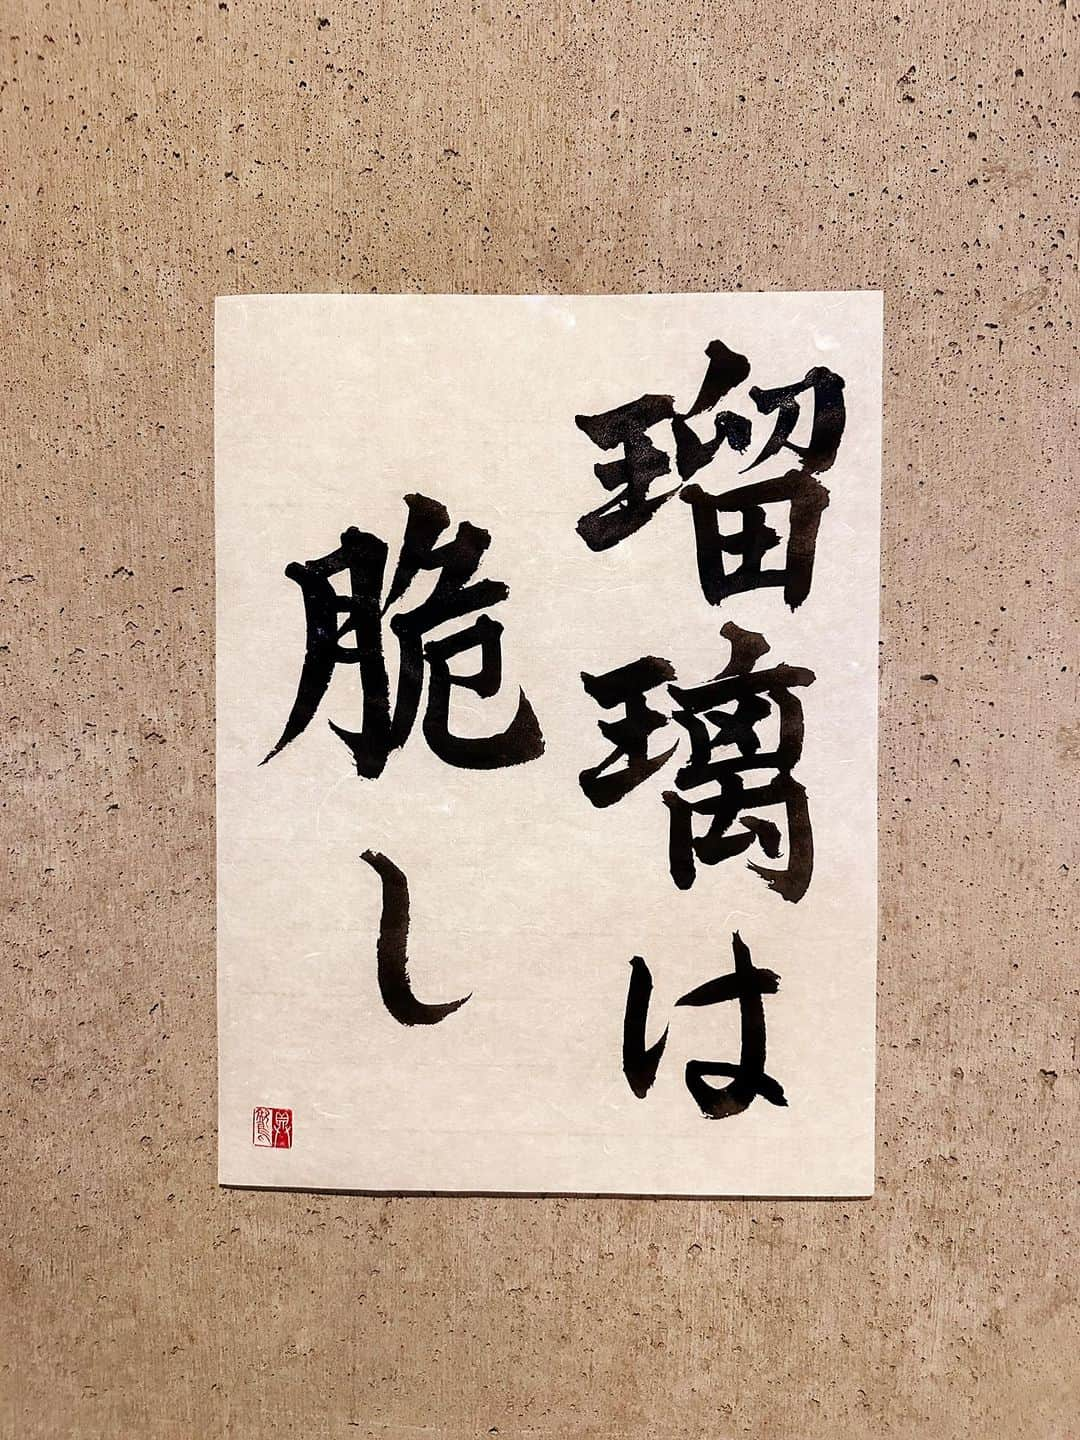 瑠璃は
脆し